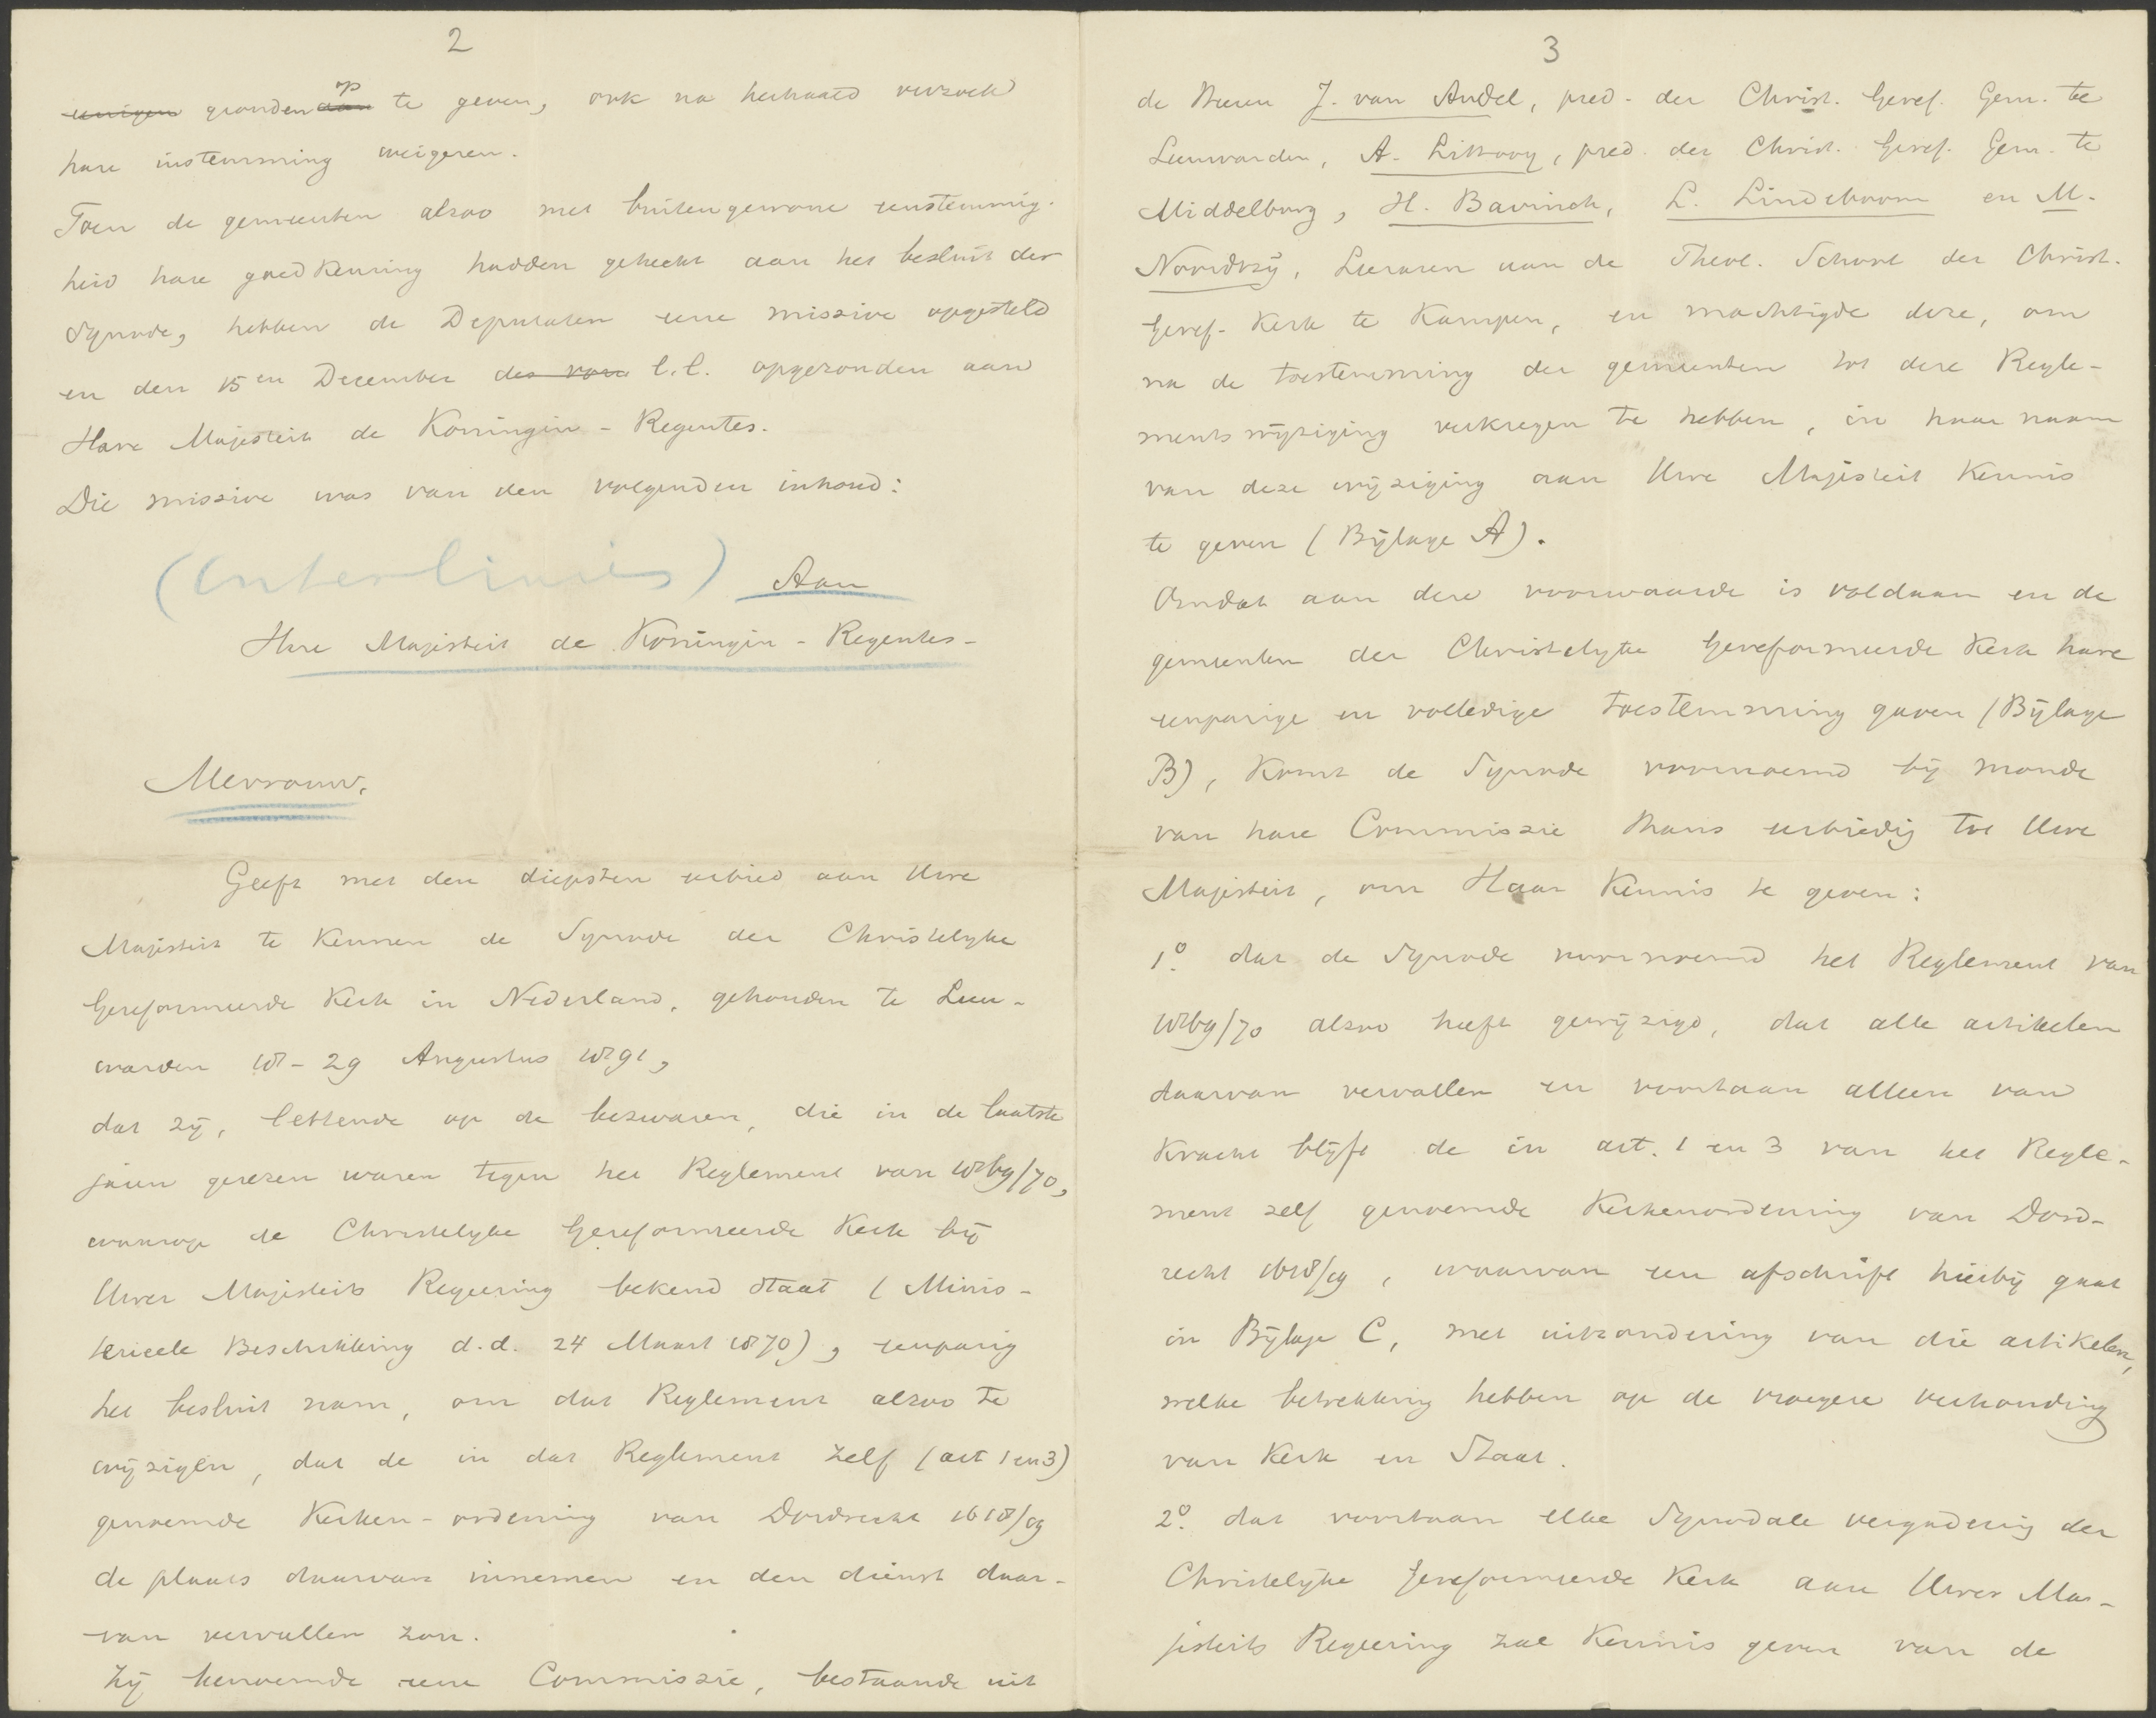 2
eenigen gronden aan op te geven, ook na herhaald verzoek
hare instemming weigeren.
Toen de gemeenten alzoo met buitengewone eenstemmig-
heid hare goedkeuring hadden gehecht aan het besluit der
Synode, hebben de Deputaten eene missive opgesteld
en den 15en December des van l.l. opgezonden aan
Hare Majesteit de Koningin-Regentes.
Die missive was van den volgenden inhoud:
(Interlinies) Aan
Hare Majesteit de Koningin-Regentes-
Mevrouw.
Geeft met den diepsten eerbied aan Uwe
Majesteit te kennen de Synode der Christelyke
Gereformeerde Kerk in Nederland, gehouden te Leeu-
warden 18-29 Augustus 1891,
dat zij, lettende op de bezwaren, die in de laatste
jaren gerezen waren tegen het Reglement van 1869/70,
waarop de Christelyke Gereformeerde Kerk bij
Uwer Majesteits Regeering bekend staat (Minis-
terieele Beschikking d.d. 24 Maart 1870), eenparig
het besluit nam, om dat Reglement alzoo te
wijzigen, dat de in dat Reglement zelf (art 1 en 3)
genoemde Kerken-ordening van Dordrecht 1618/19
de plaats daarvan innemen en den dienst daar-
van vervullen zou.
Zij benoemde eene Commissie, bestaande uit
3
de Heeren J. van Andel, pred. der Christ. Geref. Gem. te
Leeuwarden, A. Littooy, pred. der Christ. Geref. Gem. te
Middelburg, H. Bavinck, L. Lindeboom en M.
Noordtzij, Leeraren aan de Theol. School der Christ.
Geref. Kerk te Kampen, en machtigde deze, om
na de toestemming der gemeenten tot deze Regle-
mentswijziging verkregen te hebben, in haar naam
van deze wijziging aan Uwe Majesteit kennis
te geven (Bijlage A).
Omdat aan deze voorwaarde is voldaan en de
gemeenten der Christelyke Gereformeerde Kerk hare
eenparige en volledige toestemming gaven (Bijlage
B), komt de Synode voornoemd bij monde
van hare Commissie thans eerbiedig tot Uwe
Majesteit, om Haar kennis te geven:
1o. dat de Synode voornoemd het Reglement van
1869/70 alzoo heeft gewijzigd, dat alle artikelen
daarvan vervallen en voortaan alleen van
kracht blijft de in art. 1 en 3 van het Regle-
ment zelf genoemde Kerkenordening van Dord-
recht 1618/19, waarvan een afschrift hierbij gaat
in Bijlage C, met uitzondering van die artikelen,
welke betrekking hebben op de vroegere verhouding
van Kerk en Staat.
2o. dat voortaan elke Synodale vergadering der
Christelijke Gereformeerde Kerk aan Uwer Ma-
jesteits Regeering zal kennis geven van de